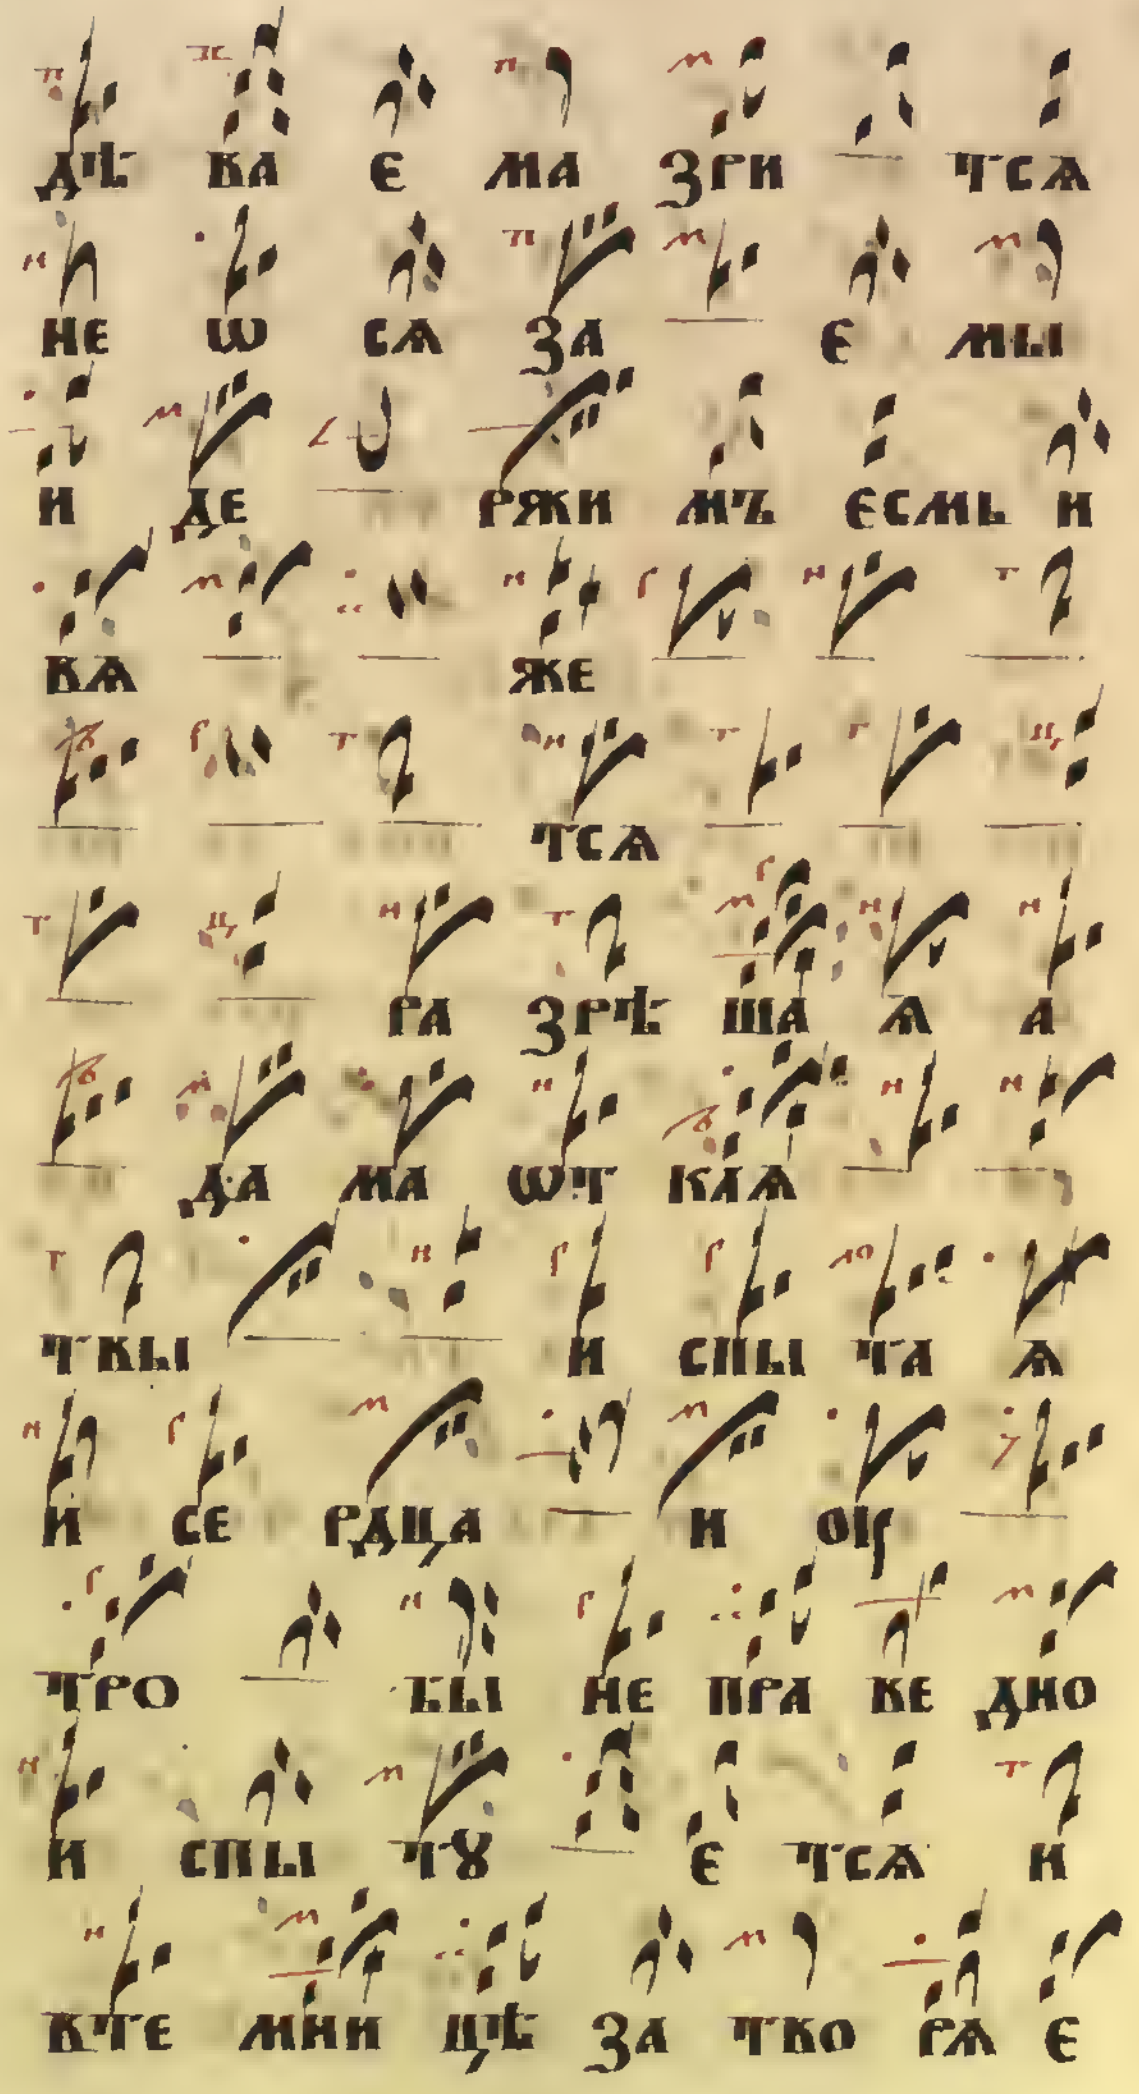 дѣ ва є ма зри тсѧ
не ѡ сѧ за є мы
и де ржи мъ єсмь и
вѧ же
тсѧ
ра зрѣ ша ѧ а
да ма ѡт каѧ
ткы и спы та ѧ
и се рдца и оу
тро бы не пра ве дно
и спы тꙋ є тсѧ и
вте мни цѣ за тво рѧ є